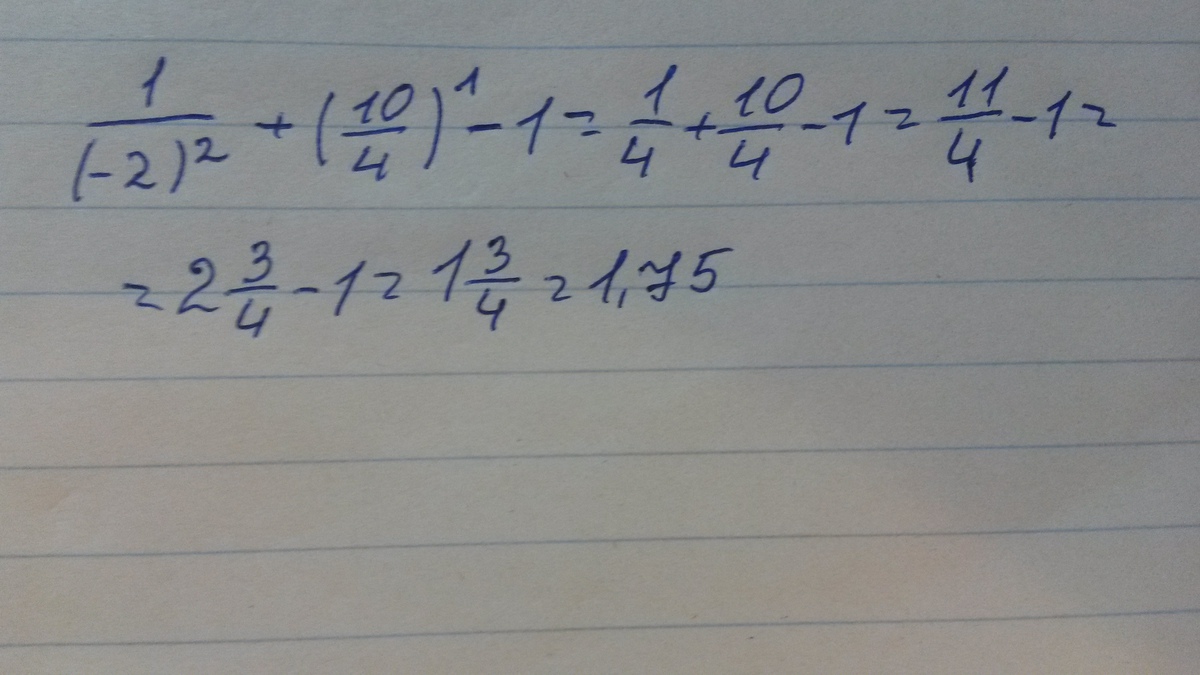 1/(-2)² + (10/4)¹ - 1 = 1/4 + 10/4 - 1 = 11/4 - 1 =
= 2 3/4 - 1 = 1 3/4 = 1,75